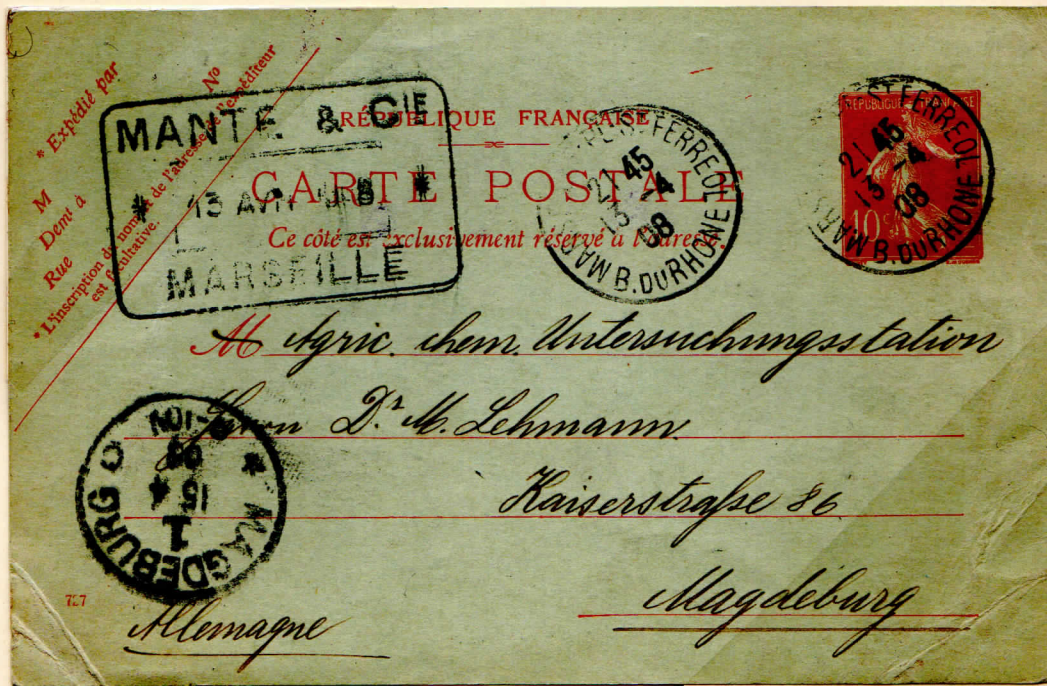 * Expédié par
No
M
Demt à
Rue
* L'inscription du nom et de l'adresse de l'expéditeur
est facultative.
MANTE & CIE
* 13 AVR *
MARSEILLE
RÉPUBLIQUE FRANÇAISE
CARTE POSTALE
Ce côté est exclusivement réservé à l'adresse.
ST FERREOL
21 45
13 -4
08
B. DU RHONE
REPUBLIQUE FRANÇAISE
10
ST FERREOL
21 45
13 -4
08
B. DU RHONE
M Agric. chem. Untersuchungsstation
Herrn Dr. M. Lehmann
Kaiserstraße 86
Magdeburg
Allemagne
* MAGDEBURG
1
15 4
08
727